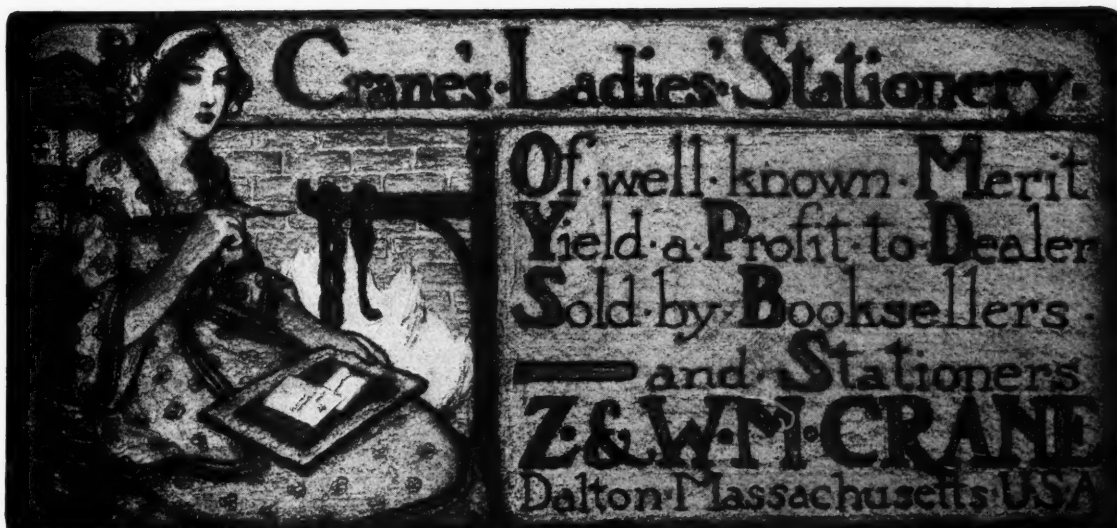 Crane's·Ladies'·Stationery·
Of·well·known·Merit
Yield·a·Profit·to·Dealer
Sold·by·Booksellers·
and·Stationers
Z·&·W·M·CRANE
Dalton·Massachusetts·U.S.A